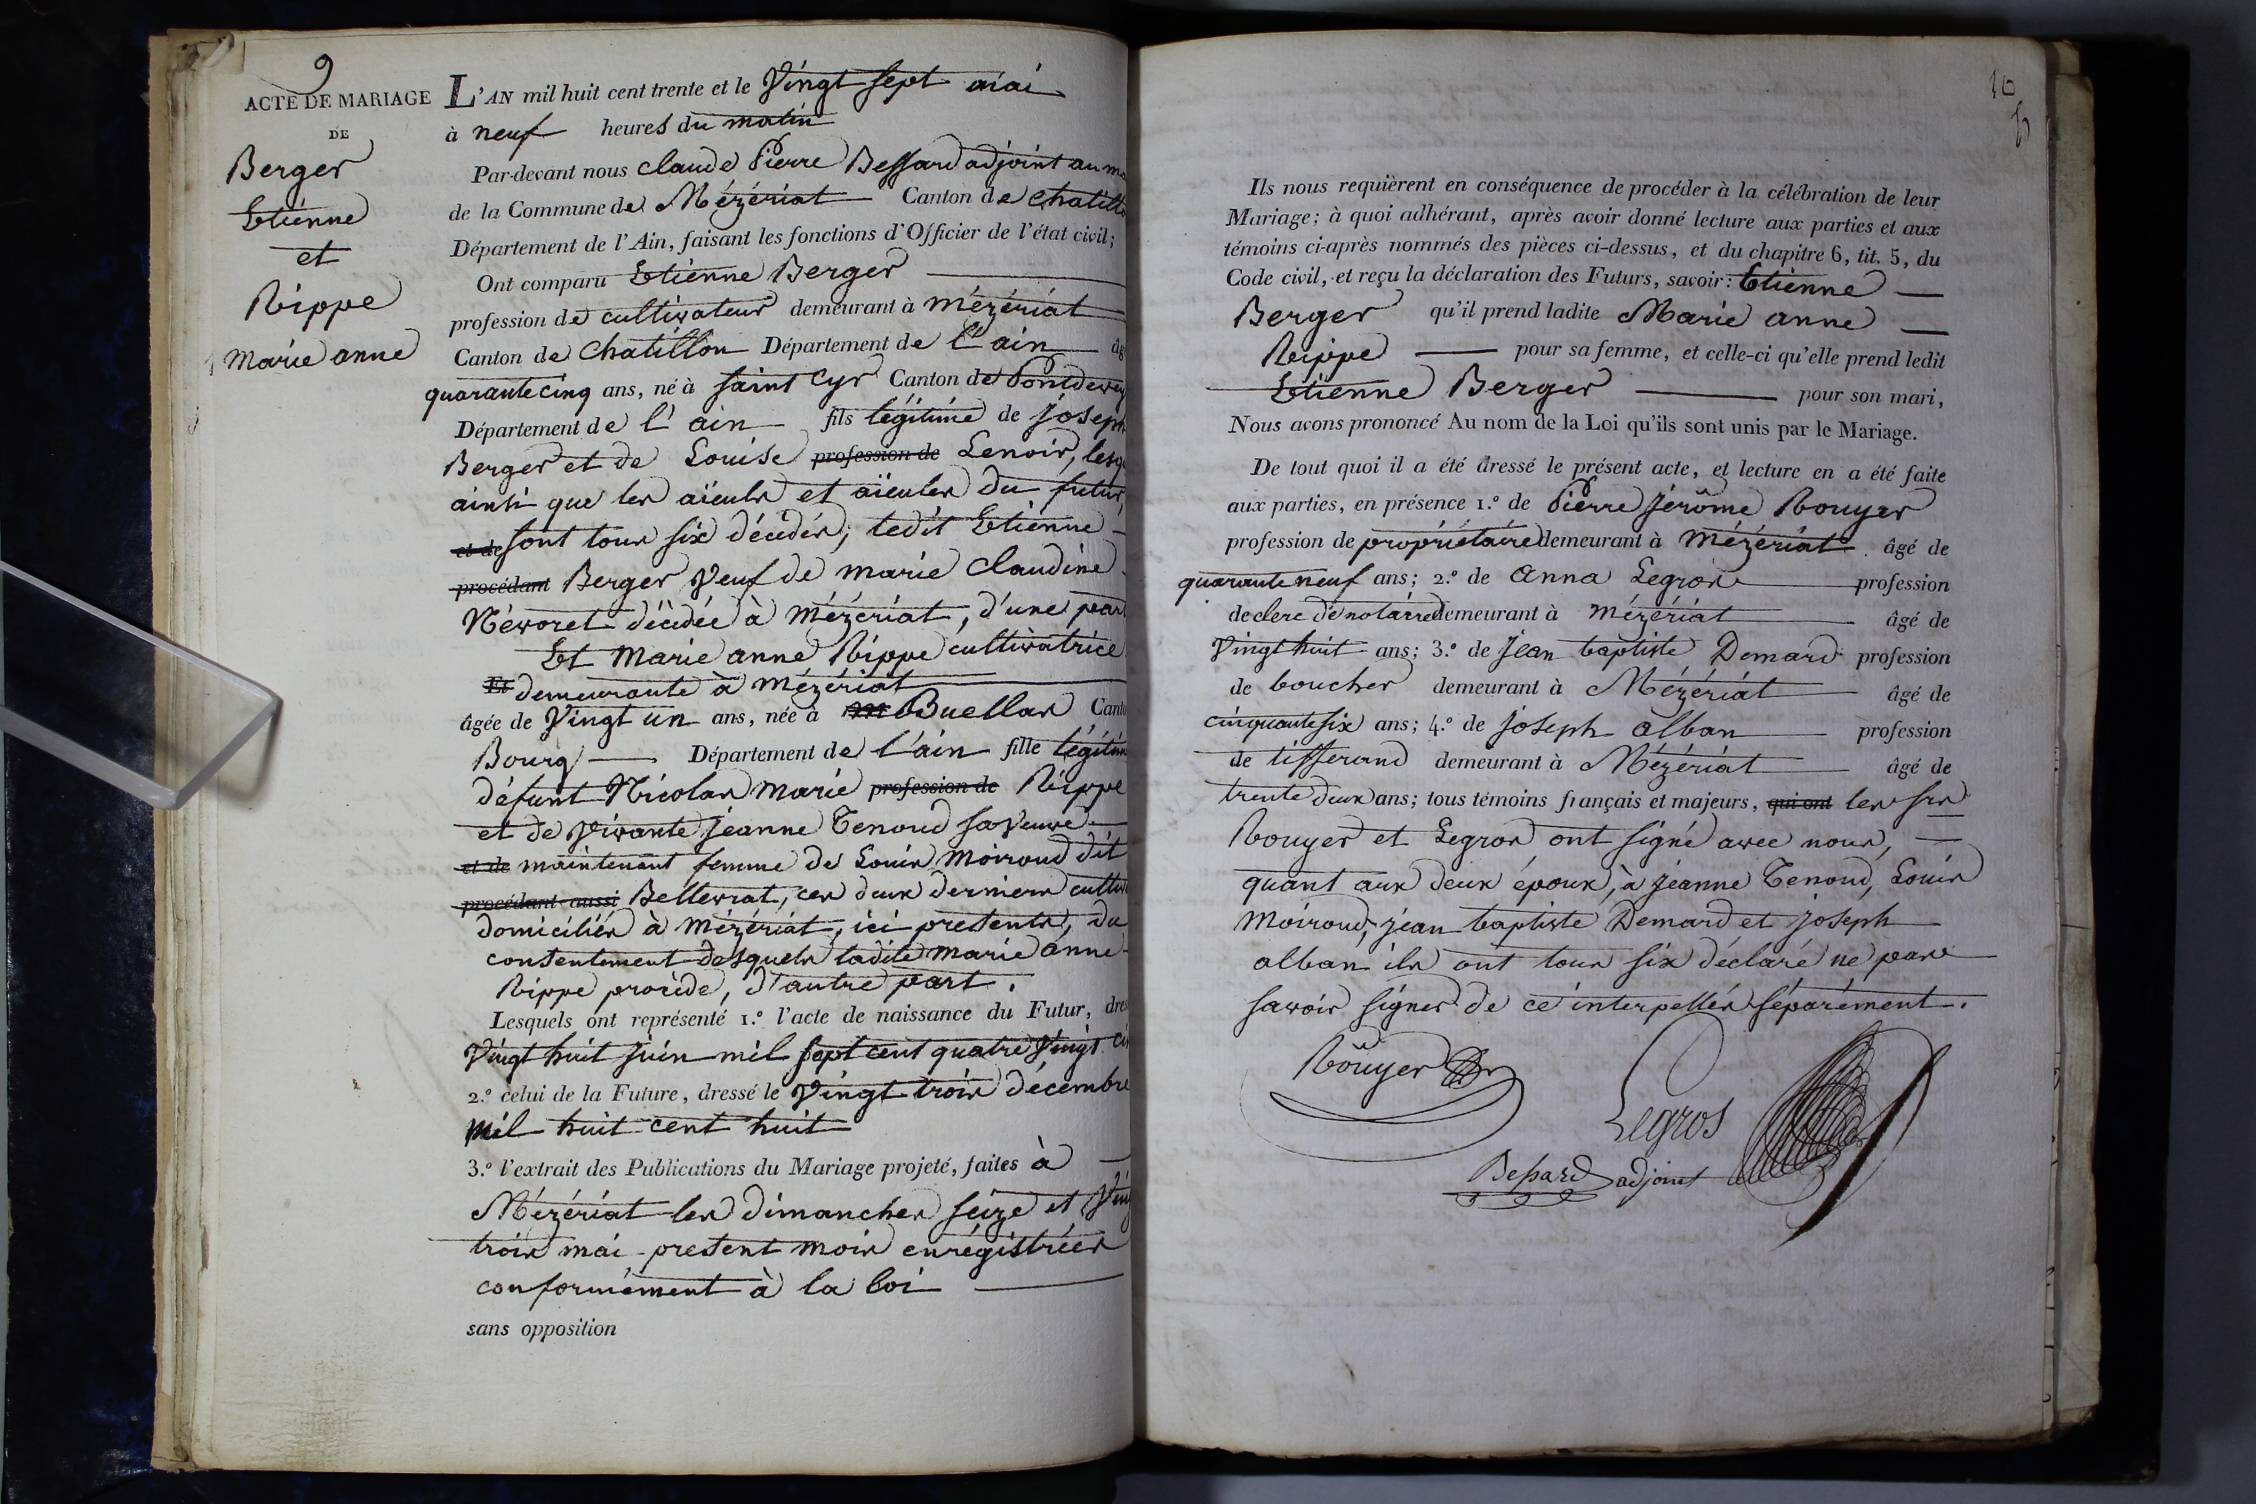 9
ACTE DE MARIAGE
DE
Berger
Etienne
et
Rippe
Marie anne
L'AN mil huit cent trente et le Vingt sept mai
à neuf heures du matin
Par-devant nous claude Pierre Bessard adjoint au
de la Commune de Mézériat Canton de chatill
Département de l'Ain, faisant les fonctions d'Officier de l'état civil;
Ont comparu Etienne Berger
profession de cultivateur demeurant à Mézériat
Canton de Chatillon Département de l'ain âg
quarante cinq ans, né à saint Cyr Canton de Pontdevey
Département de l'ain fils légitime de joseph
Berger et de Louise profession de Lenoir, lesq
ainsi que les aïeuls et aïeules du futur,
et de sont tous six décédés; ledit Etienne
procédant Berger Veuf de marie Claudine
Névoret décédée à Mézériat, d'une part
Et Marie anne Rippe cultivatrice
Et demeurante à Mézériat
âgée de Vingt un ans, née à Buellas Cant
Bourg Département de l'ain fille légitim
défunt Nicolas Marie profession de Rippe
et de Vivante Jeanne Tenoud sa Veuve
et de maintenant femme de Louis Moiroud dit
procédant aussi Bellevrat, ces deux derniers cultiv
domiciliés à Mézériat, ici présents, du
consentement desquels ladite Marie anne
Rippe procède, d'autre part.
Lesquels ont représenté 1.º l'acte de naissance du Futur, dres
Vingt huit juin mil sept cent quatre Vingt ci
2.º celui de la Future, dressé le Vingt trois décembre
mil huit cent huit
3.º l'extrait des Publications du Mariage projeté, faites à
Mézériat les dimanches seize et Ving
trois mai présent mois enrégistrées
conformément à la loi
sans opposition
10
Ils nous requièrent en conséquence de procéder à la célébration de leur
Mariage; à quoi adhérant, après avoir donné lecture aux parties et aux
témoins ci-après nommés des pièces ci-dessus, et du chapitre 6, tit. 5, du
Code civil, et reçu la déclaration des Futurs, savoir: Etienne
Berger qu'il prend ladite Marie anne
Rippe pour sa femme, et celle-ci qu'elle prend ledit
Etienne Berger pour son mari,
Nous avons prononcé Au nom de la Loi qu'ils sont unis par le Mariage.
De tout quoi il a été dressé le présent acte, et lecture en a été faite
aux parties, en présence 1.º de Pierre Jérôme Rouyer
profession de propriétaire demeurant à Mézériat âgé de
quarante neuf ans; 2.º de Anna Legros profession
de clerc de notaire demeurant à Mézériat âgé de
Vingt huit ans; 3.º de Jean baptiste Demard profession
de boucher demeurant à Mézériat âgé de
cinquante six ans; 4.º de joseph alban profession
de tisserand demeurant à Mézériat âgé de
trente deux ans; tous témoins français et majeurs, qui ont les srs
Rouyer et Legros ont signé avec nous,
quant aux deux époux, à Jeanne Tenoud, Louis
Moiroud, jean baptiste Demard et joseph
alban ils ont tous six déclaré ne pas
savoir signer de ce interpellés séparément.
Rouyer
Legros
Bessard adjoint